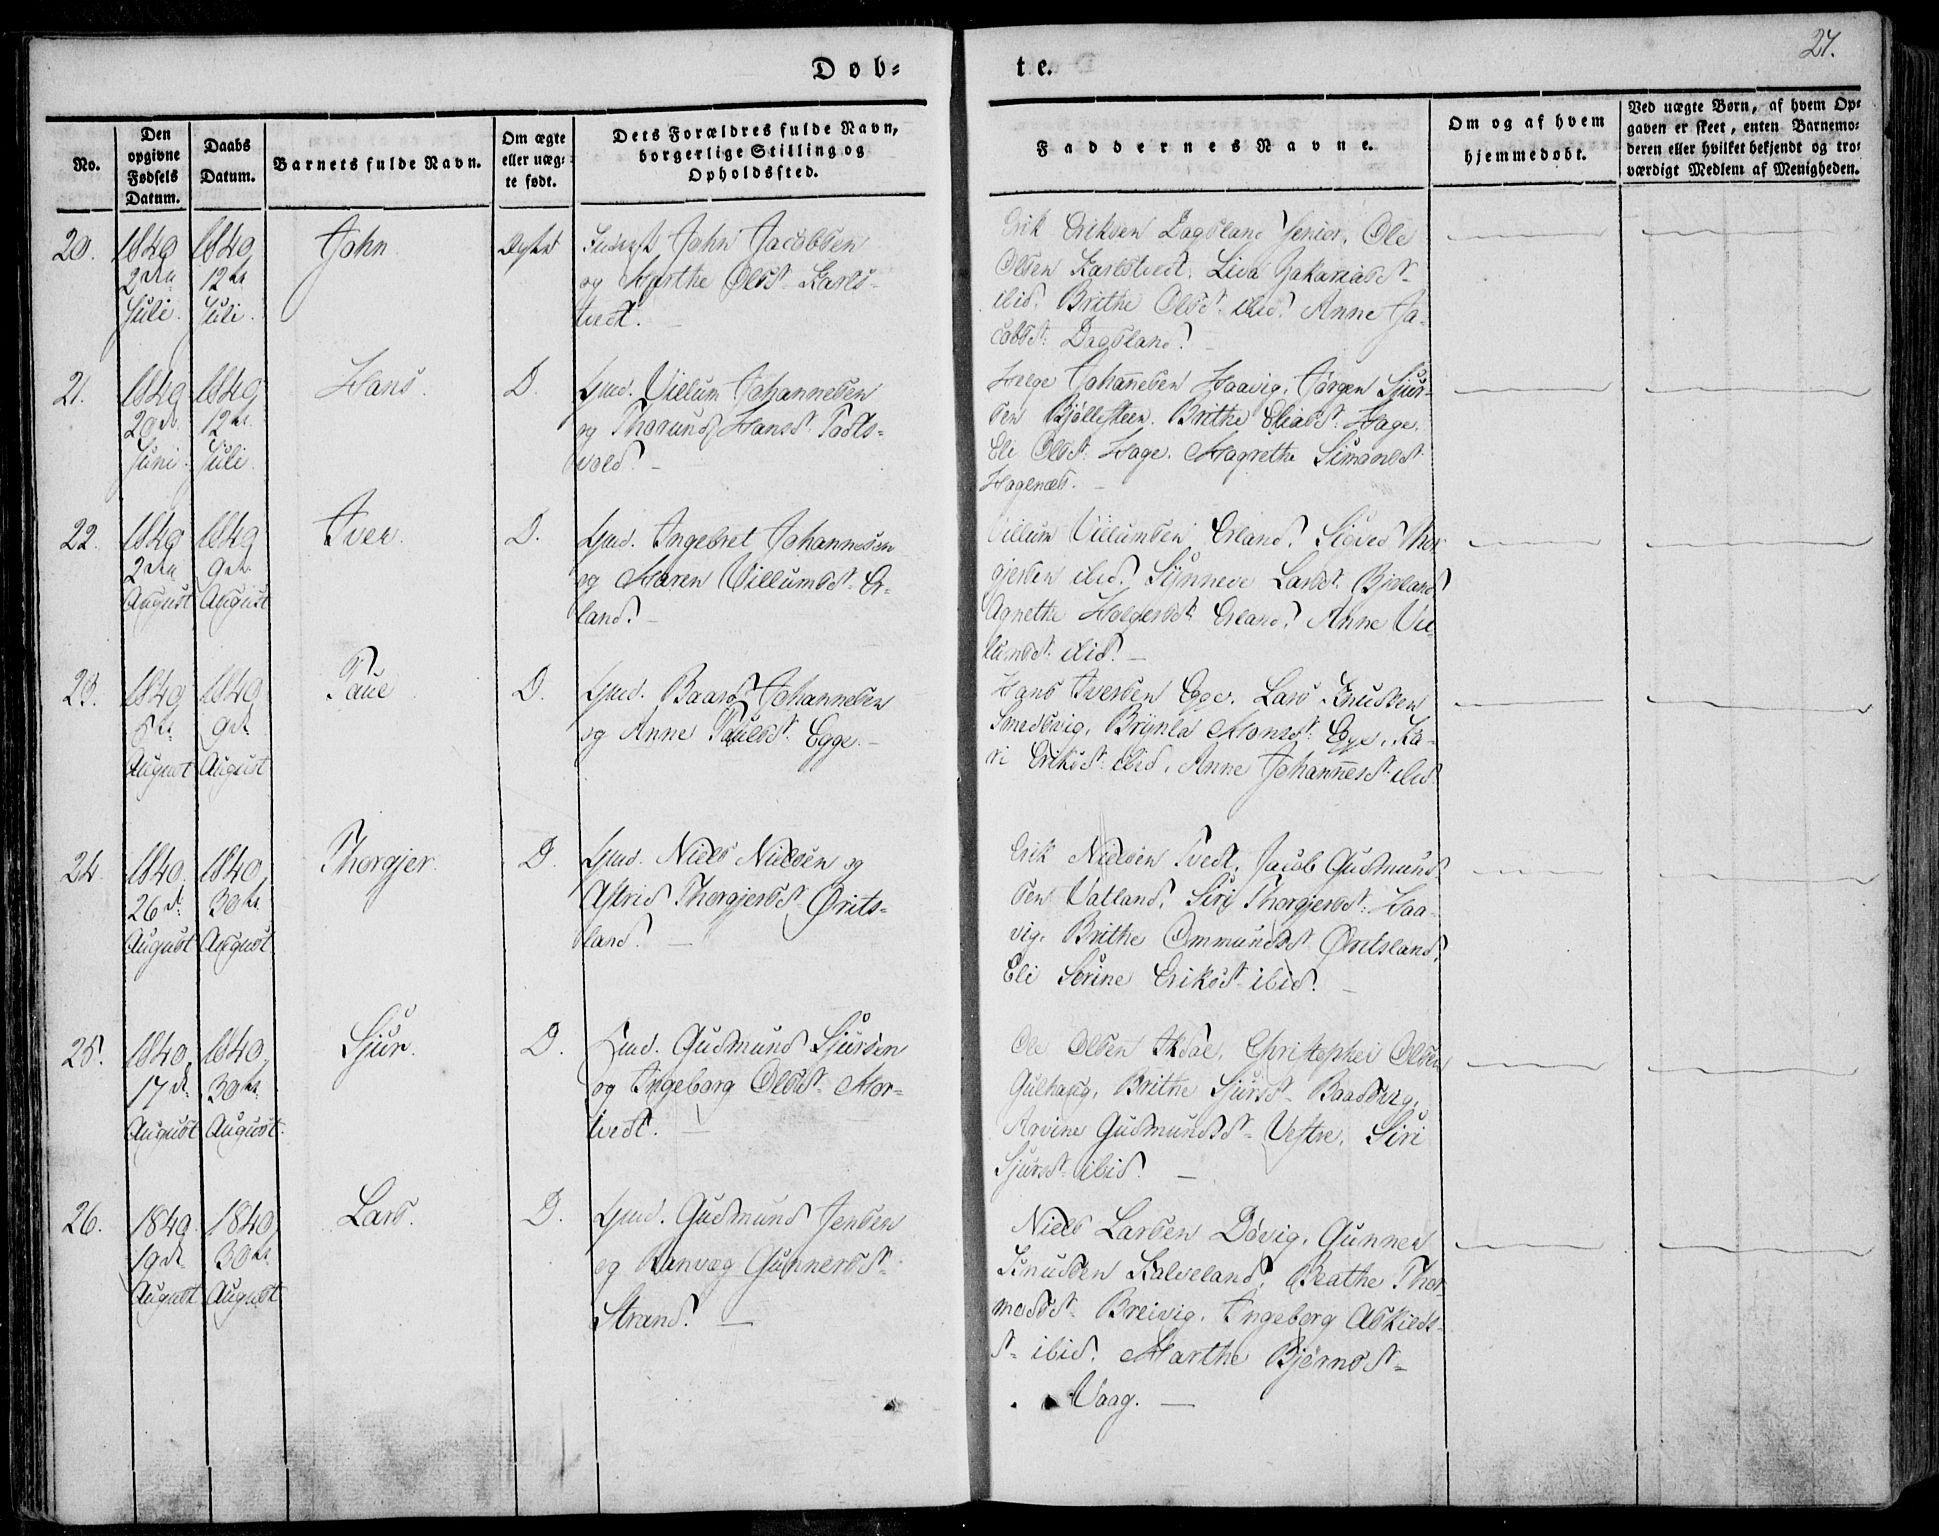 Døb-
te.
27.
No.
Den opgivne Fødsels Datum.
Daabs Datum.
Barnets fulde Navn.
Om ægte eller uæg-
te født.
Dets Forældres fulde Navn,
borgerlige Stilling og
Opholdssted.
Faddernes Navne.
Om og af hvem
hjemmedøbt.
Ved uægte Børn, af hvem Op-
gaven er skeet, enten Barnemo-
deren eller hvilket bekjendt og tro-
værdigt Medlem af Menigheden.
20.
1840 2den Juli.
1840 12te Juli.
John
Ægte
John Jacobsen
og Marthe Olsdt Karls-
tvedt.
Erik Eriksen Dagsland Senior, Ole
Olsen Karlstvedt, Lisa Zakariasdt
ibid. Brithe Olsdt ibid. Anne Ja-
cobsdt Dagsland.
21.
1840 20de Juni.
1840 12te Juli.
Hans.
D.
Gmd. Villum Johannesen
og Thorund Hansdt
vold.
Helge Johannesen Haavig, Jørgen Sjur-
sen Bjøllesteen. Brithe Eliasdt Hage.
Eli Olsdt Hage. Magrethe Simonsdt
Hagenæs.
22.
1840 2den August
1840 9de August
Iver.
D.
Gmd. Ingebret Johannesen
og Maren Villumsdt Er-
land.
Villum Villumsen Erland, Thor-
gjersen ibid. Synneve Larsdt Bjeland
Agnethe Holgersdt Erland, Anne Vil-
lumsdt ibid.
23.
1840 5te August
1840 9de August
Paul
D.
Gmd. Baard Johannesen
og Anne Paulsdt Egge.
Hans Iversen Egge, Lars Knudsen
Smedsvig, Brynla Monsdt Egge, Ka-
ri Eriksdt ibid, Anne Johannesdt ibid
24.
1840. 26de August
1840. 30te August.
Thorgjer.
D.
Gmd. Niels Nielsen og
Astrid Thorgjersdt Ørits-
land.
Erik Nielsen Tvedt, Jacob Gudmund-
sen Valland, Siri Thorgjersdt Haa-
vig, Brithe Ommundsdt Øritsland,
Eli Serine Eriksdt ibid.
25.
1840. 17de August
1840. 30te August.
Sjur.
D.
Gmd. Gudmund Sjursen
og Ingeborg Olsdt Mor-
tvedt.
Ole Olsen Christopher Olsen
Gulhaug, Brithe Sjursdt Baadsvig,
Arvine Gudmundsdt Vestre, Siri
Sjursdt ibid.
26.
1840. 19de August
1840. 30te August
Lars.
D.
Gmd. Gudmund Jensen
og Ranvæg Gunnersdt
Strand.
Niels Larsen Døvig, Gunner
Knudsen Kalveland, Beathe Thor-
modsdt Breivig, Ingeborg Askilds-
dt ibid. Marthe Bjørnsdt
Vaag.